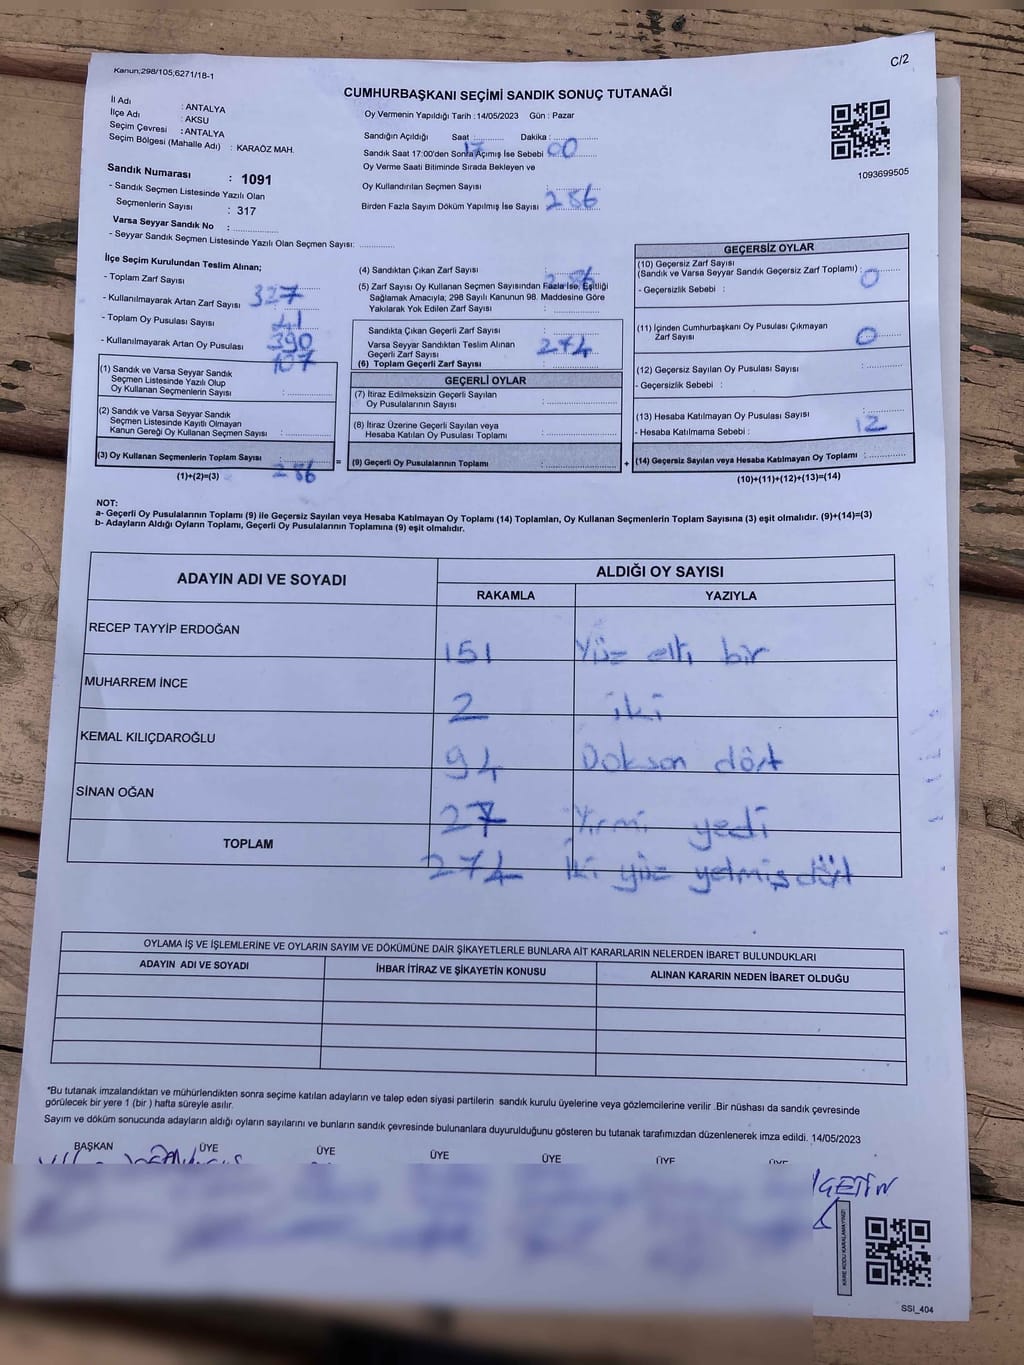 Kanun;298/105;6271/18-1
C/2
CUMHURBAŞKANI SEÇİMİ SANDIK SONUÇ TUTANAĞI
İl Adı : ANTALYA
İlçe Adı : AKSU
Seçim Çevresi : ANTALYA
Seçim Bölgesi (Mahalle Adı) : KARAÖZ MAH.
Oy Vermenin Yapıldığı Tarih :14/05/2023 Gün : Pazar
Sandığın Açıldığı Saat 17 Dakika : 00
Sandık Saat 17:00'den Sonra Açımış İse Sebebi
Oy Verme Saati Bitiminde Sırada Bekleyen ve
Oy Kullandırılan Seçmen Sayısı
Birden Fazla Sayım Döküm Yapılmış İse Sayısı 286
1093699505
Sandık Numarası : 1091
- Sandık Seçmen Listesinde Yazılı Olan
Seçmenlerin Sayısı : 317
Varsa Seyyar Sandık No :
- Seyyar Sandık Seçmen Listesinde Yazılı Olan Seçmen Sayısı:
İlçe Seçim Kurulundan Teslim Alınan;
- Toplam Zarf Sayısı
- Kullanılmayarak Artan Zarf Sayısı 327
- Toplam Oy Pusulası Sayısı 41
- Kullanılmayarak Artan Oy Pusulası 390
107
(1) Sandık ve Varsa Seyyar Sandık
Seçmen Listesinde Yazılı Olup
Oy Kullanan Seçmenlerin Sayısı :
(2) Sandık ve Varsa Seyyar Sandık
Seçmen Listesinde Kayıtlı Olmayan
Kanun Gereği Oy Kullanan Seçmen Sayısı :
(3) Oy Kullanan Seçmenlerin Toplam Sayısı :
(1)+(2)=(3) 286
(4) Sandıktan Çıkan Zarf Sayısı : 286
(5) Zarf Sayısı Oy Kullanan Seçmen Sayısından Fazla İse, Eşitliği
Sağlamak Amacıyla; 298 Sayılı Kanunun 98. Maddesine Göre
Yakılarak Yok Edilen Zarf Sayısı :
Sandıkta Çıkan Geçerli Zarf Sayısı :
Varsa Seyyar Sandıktan Teslim Alınan
Geçerli Zarf Sayısı : 274
(6) Toplam Geçerli Zarf Sayısı :
GEÇERLİ OYLAR
(7) İtiraz Edilmeksizin Geçerli Sayılan
Oy Pusulalarının Sayısı :
(8) İtiraz Üzerine Geçerli Sayılan veya
Hesaba Katılan Oy Pusulası Toplamı :
= (9) Geçerli Oy Pusulalarının Toplamı :
GEÇERSİZ OYLAR
(10) Geçersiz Zarf Sayısı
(Sandık ve Varsa Seyyar Sandık Geçersiz Zarf Toplamı) :
- Geçersizlik Sebebi : 0
(11) İçinden Cumhurbaşkanı Oy Pusulası Çıkmayan
Zarf Sayısı : 0
(12) Geçersiz Sayılan Oy Pusulası Sayısı :
- Geçersizlik Sebebi :
(13) Hesaba Katılmayan Oy Pusulası Sayısı :
- Hesaba Katılmama Sebebi : 12
+ (14) Geçersiz Sayılan veya Hesaba Katılmayan Oy Toplamı :
(10)+(11)+(12)+(13)=(14)
NOT:
a- Geçerli Oy Pusulalarının Toplamı (9) ile Geçersiz Sayılan veya Hesaba Katılmayan Oy Toplamı (14) Toplamları, Oy Kullanan Seçmenlerin Toplam Sayısına (3) eşit olmalıdır. (9)+(14)=(3)
b- Adayların Aldığı Oyların Toplamı, Geçerli Oy Pusulalarının Toplamına (9) eşit olmalıdır.
ADAYIN ADI VE SOYADI
ALDIĞI OY SAYISI
RAKAMLA YAZIYLA
RECEP TAYYİP ERDOĞAN 151 Yüz elli bir
MUHARREM İNCE 2 iki
KEMAL KILIÇDAROĞLU 94 Doksan dört
SİNAN OĞAN 27 Yirmi yedi
TOPLAM 274 İki yüz yetmiş dört
OYLAMA İŞ VE İŞLEMLERİNE VE OYLARIN SAYIM VE DÖKÜMÜNE DAİR ŞİKAYETLERLE BUNLARA AİT KARARLARIN NELERDEN İBARET BULUNDUKLARI
ADAYIN ADI VE SOYADI İHBAR İTİRAZ VE ŞİKAYETİN KONUSU ALINAN KARARIN NEDEN İBARET OLDUĞU
*Bu tutanak imzalandıktan ve mühürlendikten sonra seçime katılan adayların ve talep eden siyasi partilerin sandık kurulu üyelerine veya gözlemcilerine verilir .Bir nüshası da sandık çevresinde
görülecek bir yere 1 (bir ) hafta süreyle asılır.
Sayım ve döküm sonucunda adayların aldığı oyların sayılarını ve bunların sandık çevresinde bulunanlara duyurulduğunu gösteren bu tutanak tarafımızdan düzenlenerek imza edildi. 14/05/2023
BAŞKAN ÜYE ÜYE ÜYE ÜYE ÜYE ÜYE
KARE KODU KARALAMAYINIZ!
SSI_404